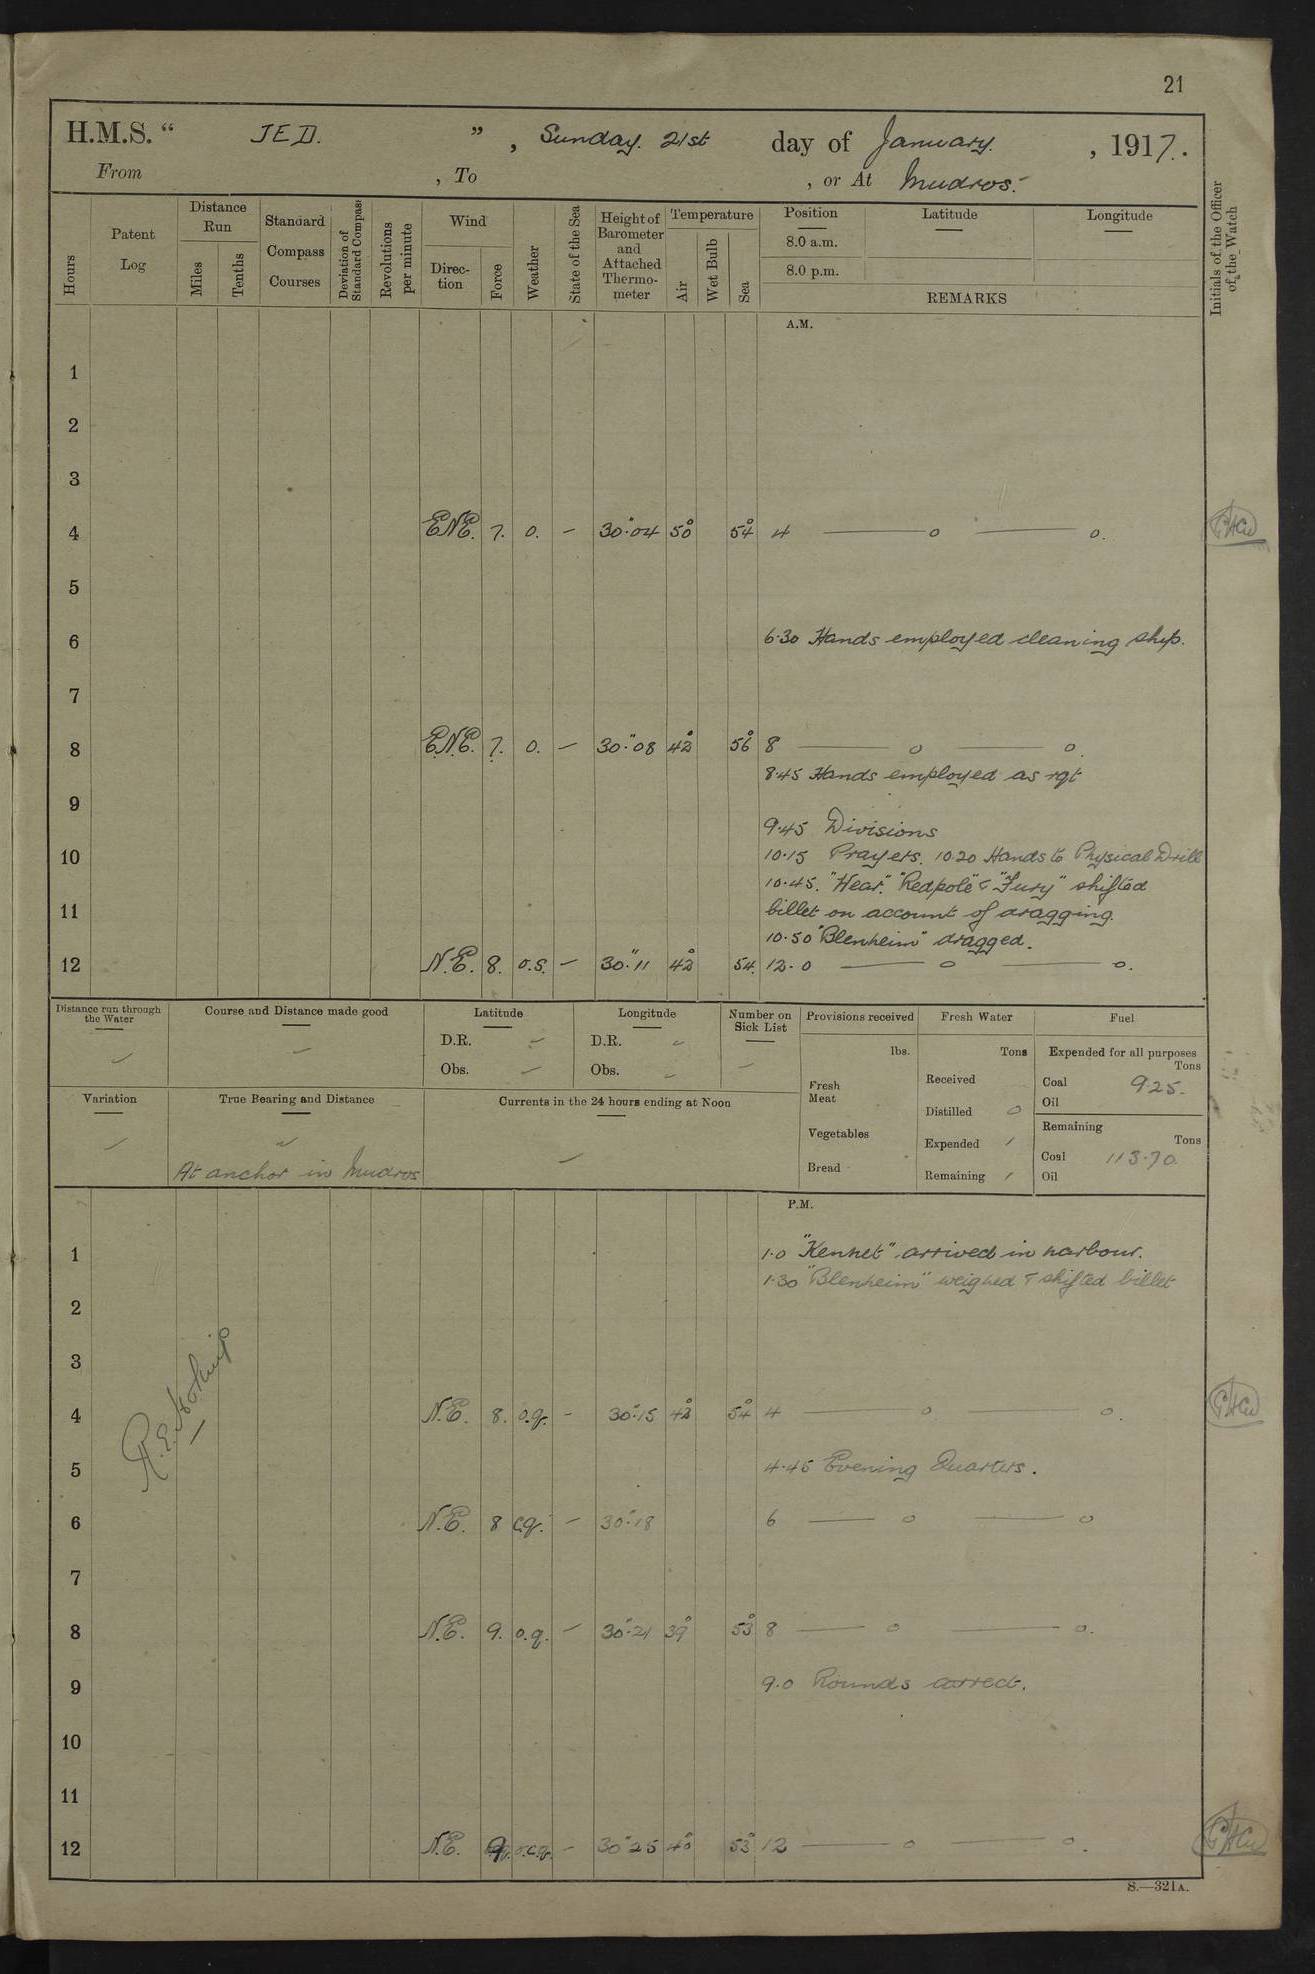 21
H.M.S. “ JED. ” , Sunday. 21st day of January. , 1917.
From , To , or At Mudros.
Hours
Patent Log
Distance Run
Miles
Tenths
Standard Compass Courses
Deviation of Standard Compass
Revolutions per minute
Wind
Direc-tion
Force
Weather
State of the Sea
Height of Barometer and Attached Thermo-meter
Temperature
Air
Wet Bulb
Sea
Position
Latitude
Longitude
8.0 a.m.
8.0 p.m.
REMARKS
Initials of the Officer of the Watch
A.M.
1
2
3
4 ENE. 7. o. — 30".04 50° 54° 4 —— o —— o.
5
6 6.30 Hands employed cleaning ship.
7
8 E.N.E. 7. o. — 30".08 42° 56° 8 —— o —— o.
8.45 Hands employed as rqt
9
9.45 Divisions
10 10.15 Prayers. 10.20 Hands to Physical Drill
10.45. "Wear" "Redpole" & "Fury" shifted
11 billet on account of dragging.
10.50 "Blenheim" dragged.
12 N.E. 8. o.s. — 30".11 42° 54. 12.0 —— o —— o.
Distance run through the Water
Course and Distance made good
Latitude
D.R. —
Obs. —
Longitude
D.R. —
Obs. —
Number on Sick List
—
Provisions received
lbs.
Fresh Meat
Vegetables
Bread
Fresh Water
Tons
Received
Distilled o
Expended /
Remaining /
Fuel
Expended for all purposes
Tons
Coal 9.25.
Oil
Remaining
Tons
Coal 113.70
Oil
Variation
True Bearing and Distance
At anchor in Mudros
Currents in the 24 hours ending at Noon
—
P.M.
1 1.0 "Kennet" arrived in harbour.
1.30 "Blenheim" weighed & shifted billet
2
3
4 N.E. 8. o.q. — 30".15 42° 54° 4 —— o —— o.
5 4.45 Evening Quarters.
6 N.E. 8 c.q. — 30".18 6 —— o —— o
7
8 N.E. 9. o.q. — 30".21 39° 53° 8 —— o —— o.
9 9.0 Rounds correct.
10
11
12 N.E. 9. o.c.q. — 30".25 40° 53° 12 —— o —— o.
S.—321A.